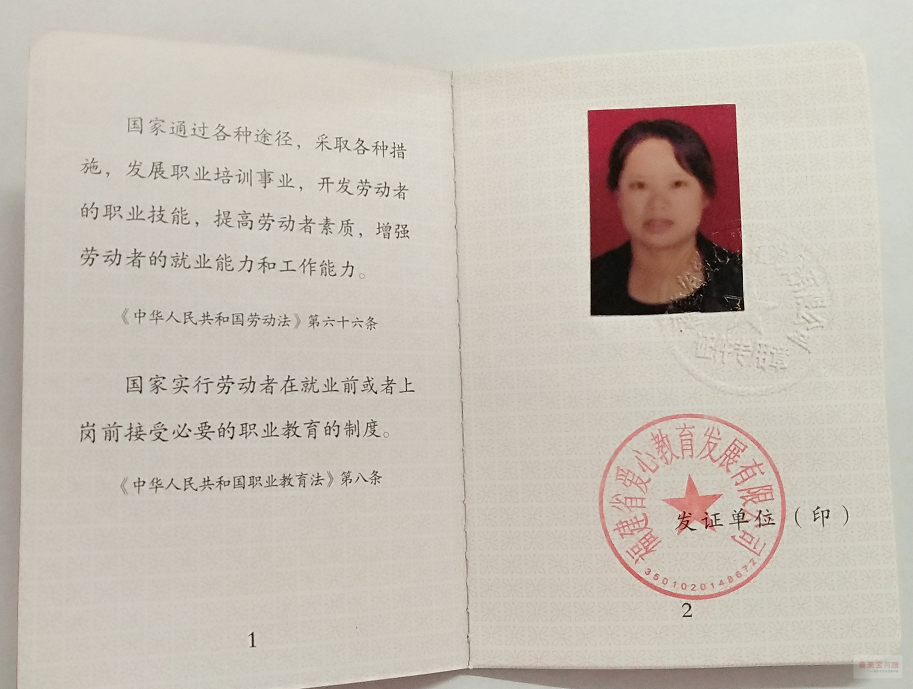 国家通过各种途径，采取各种措
施，发展职业培训事业，开发劳动者
的职业技能，提高劳动者素质，增强
劳动者的就业能力和工作能力。
《中华人民共和国劳动法》第六十六条
国家实行劳动者在就业前或者上
岗前接受必要的职业教育的制度。
《中华人民共和国职业教育法》第八条
1
证书专用章
福建省爱心教育发展有限公司
发证单位（印）
3501020148672
2